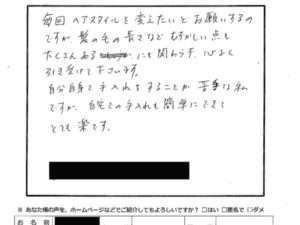 毎回 ヘアスタイルを変えたいとお願いするの
ですが、髪の毛の長さなど むずかしい点も
たくさんある にも関わらず、心よく
引き受けて下さいます。
自分自身で手入れをすることが苦手な私
ですが、自宅での手入れも簡単にできて
とても楽です。
※ あなた様の声を、ホームページなどでご紹介してもよろしいですか？ □はい □匿名で □ダメ
お名前